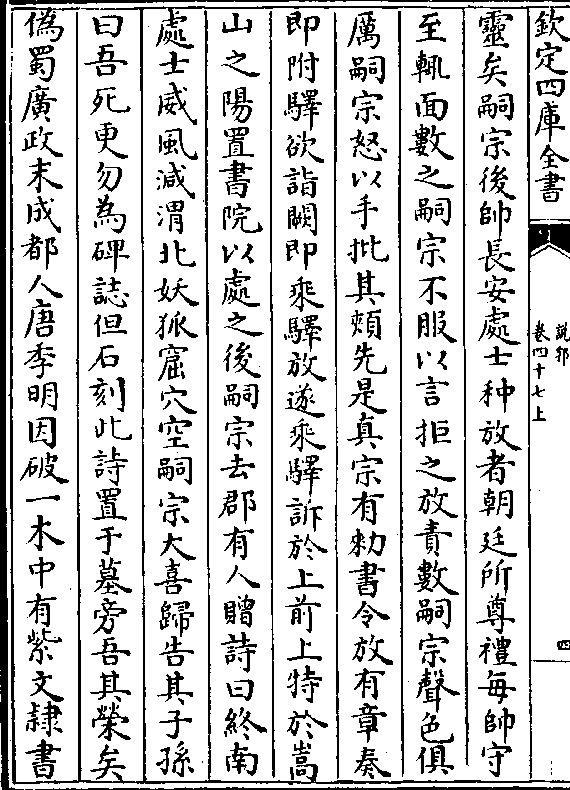 欽定四庫全書
說郛
卷四十七上
四
靈矣嗣宗後帥長安處士种放者朝廷所尊禮每帥守
至輒面數之嗣宗不服以言拒之放責數嗣宗聲色俱
厲嗣宗怒以手批其頰先是真宗有勑書令放有章奏
即附驛欲詣闕即乘驛放遂乘驛訴於上前上特於嵩
山之陽置書院以處之後嗣宗去郡有人贈詩曰終南
處士威風減渭北妖狐窟穴空嗣宗大喜歸告其子孫
曰吾死更勿為碑誌但石刻此詩置于墓旁吾其榮矣
偽蜀廣政末成都人唐季明因破一木中有紫文隷書